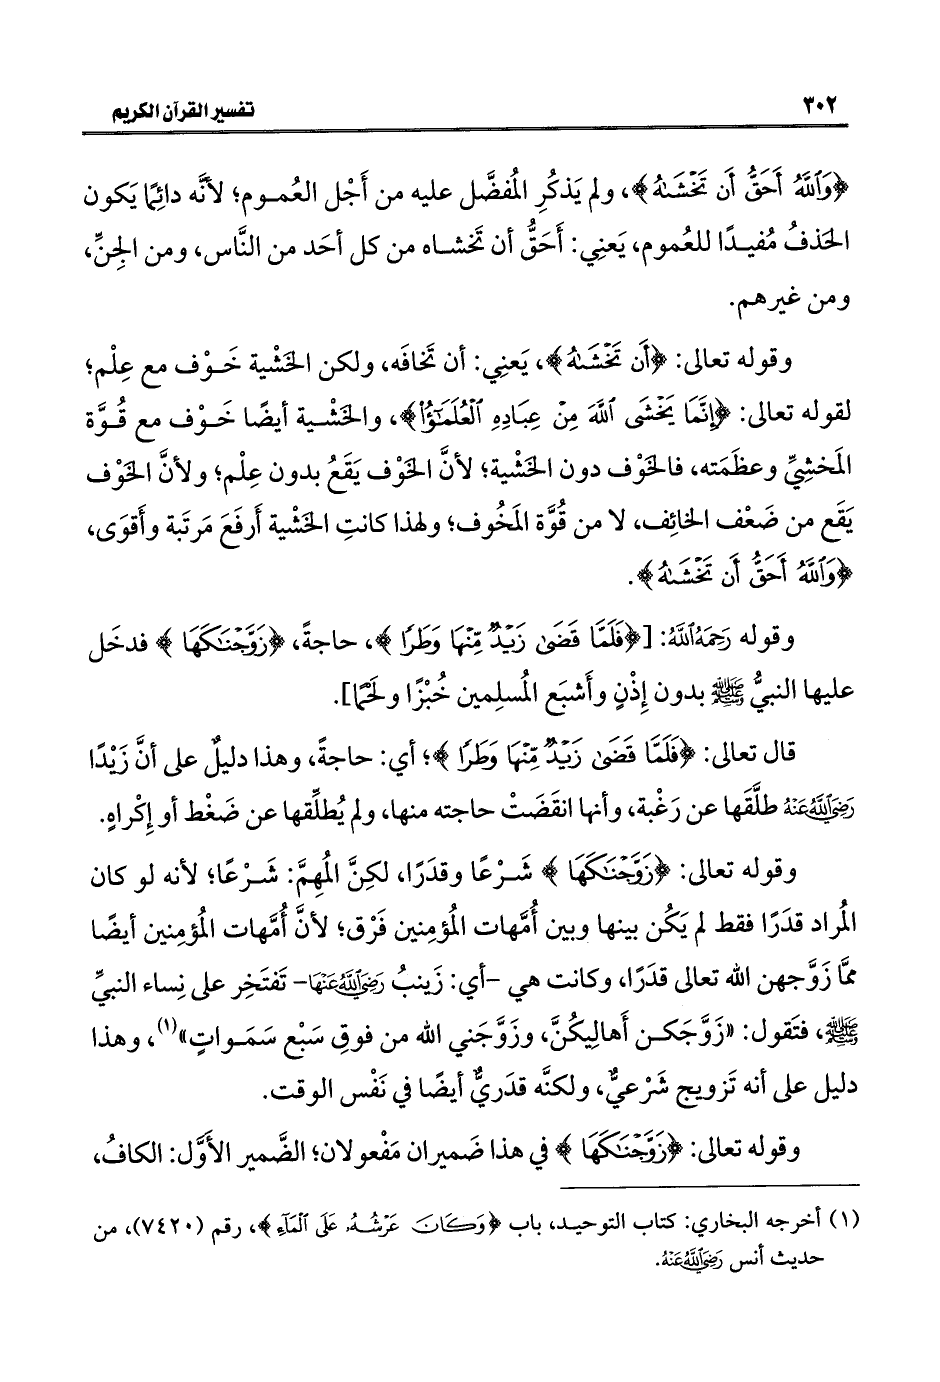 ٣٠٢
تفسير القرآن الكريم
﴿وَٱللَّهُ أَحَقُّ أَن تَخْشَىٰهُ﴾، ولم يَذكُرِ المُفضَّل عليه من أَجْل العُمـوم؛ لأنَّه دائِمًا يَكون
الحَذفُ مُفيـدًا للعُموم، يَعنِي: أَحَقُّ أن تَخشـاه من كل أحَد من النَّاس، ومن الجِنِّ،
ومن غيرهم.
وقوله تعالى: ﴿أَن تَخْشَىٰهُ﴾، يَعنِي: أن تَخافَه، ولكن الخَشْية خَـوْف مع عِلْم؛
لقوله تعالى: ﴿إِنَّمَا يَخْشَى ٱللَّهَ مِنْ عِبَادِهِ ٱلْعُلَمَـٰٓؤُا۟﴾، والخَشْـية أيضًا خَـوْف مع قُـوَّة
المَخشِيِّ وعظَمَته، فالخَوْف دون الخَشْية؛ لأنَّ الخَوْف يَقَعُ بدون عِلْم؛ ولأنَّ الخَوْف
يَقَع من ضَعْف الخائِف، لا من قُوَّة المَخُوف؛ ولهذا كانتِ الخَشْية أَرفَعَ مَرتَبة وأَقوَى،
﴿وَٱللَّهُ أَحَقُّ أَن تَخْشَىٰهُ﴾.
وقوله رَحِمَهُ ٱللَّهُ: [﴿فَلَمَّا قَضَىٰ زَيْدٌ مِّنْهَا وَطَرًا﴾، حاجةً، ﴿زَوَّجْنَـٰكَهَا﴾ فدخَل
عليها النبيُّ ﷺ بدون إِذْنٍ وأَشبَع المُسلِمين خُبْزًا ولَحْمًا].
قال تعالى: ﴿فَلَمَّا قَضَىٰ زَيْدٌ مِّنْهَا وَطَرًا﴾؛ أي: حاجةً، وهذا دليلٌ على أنَّ زَيْدًا
رَضِيَ ٱللَّهُ عَنْهُ طلَّقَها عن رَغْبة، وأنها انقَضَتْ حاجته منها، ولم يُطلِّقها عن ضَغْط أو إِكْراهٍ.
وقوله تعالى: ﴿زَوَّجْنَـٰكَهَا﴾ شَـرْعًا وقدَرًا، لكِنَّ المُهِمَّ: شَـرْعًا؛ لأنه لو كان
المُراد قدَرًا فقط لم يَكُن بينها وبين أُمَّهات المُؤمِنين فَرْق؛ لأنَّ أُمَّهات المُؤمِنين أيضًا
ممَّا زَوَّجهن الله تعالى قدَرًا، وكانت هي -أي: زَينبُ رَضِيَ ٱللَّهُ عَنْهَا- تَفتَخِر على نِساء النبيِّ
ﷺ، فتَقول: «زَوَّجَكـن أَهالِيكُنَّ، وزَوَّجَني الله من فوقِ سَبْع سَمَـواتٍ»(١)، وهذا
دليل على أنه تَزويج شَرْعيٌّ، ولكنَّه قدَريٌّ أيضًا في نَفْس الوقت.
وقوله تعالى: ﴿زَوَّجْنَـٰكَهَا﴾ في هذا ضَميران مَفْعولان؛ الضَّمير الأَوَّل: الكافُ،
(١) أخرجه البخاري: كتاب التوحيد، باب ﴿وَكَانَ عَرْشُهُۥ عَلَى ٱلْمَآءِ﴾، رقم (٧٤٢٠)، من
حديث أنس رَضِيَ ٱللَّهُ عَنْهُ.